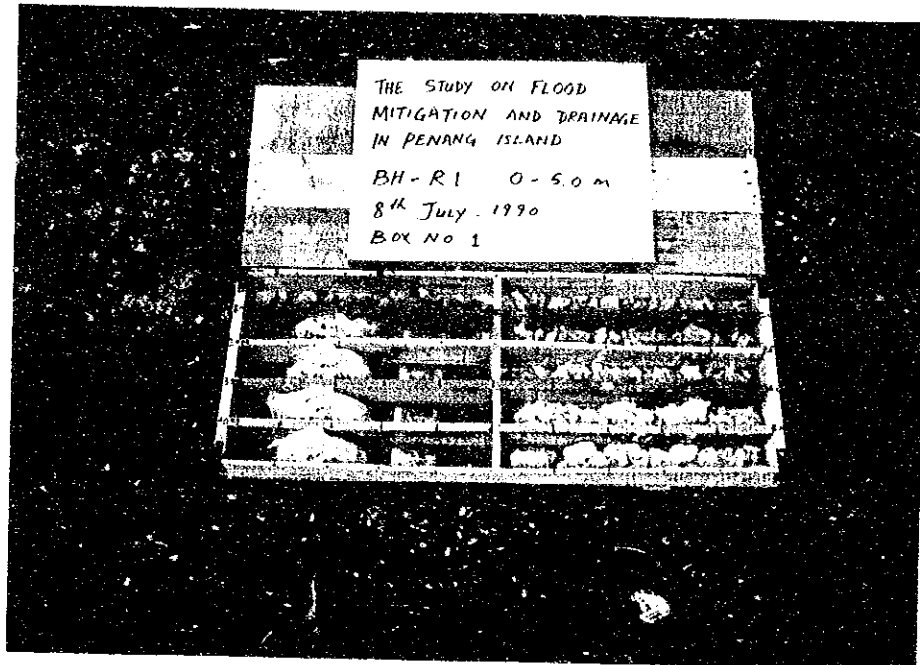 THE STUDY ON FLOOD
MITIGATION AND DRAINAGE
IN PENANG ISLAND
BH - R1 0 - 5.0 m
8th July . 1990
BOX NO 1